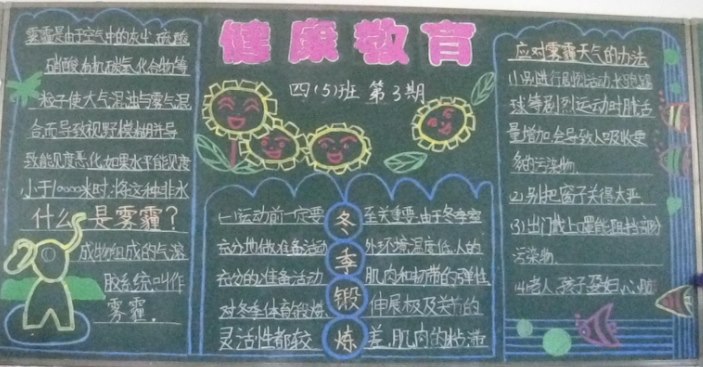 健康教育
四(5)班 第3期
雾霾是由于空气中的灰尘、硫酸
硝酸、有机碳氢化合物等
粒子使大气混浊与雾气混
合而导致视野模糊并导
致能见度恶化,如果水平能见度
小于10000米时,将这种非水
什么是雾霾?
成物组成的气溶
胶系统叫作
雾霾.
冬季锻炼
(一)运动前一定要
充分地做准备活动
充分的准备活动
对冬季体育锻炼
灵活性都较
至关重要,由于冬季室
外环境温度低,人的
肌肉和韧带的弹性,
伸展极及关节的
差,肌肉的粘滞
应对雾霾天气的办法
球等剧烈运动时肺活
量增加,会导致人吸收更
多的污染物.
2)别把窗子关得太严
(3)出门戴上口罩能阻挡部分
污染物.
(4)老人,孩子,孕妇,心脏